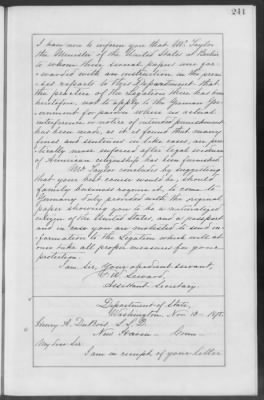 241
I have now to inform you that Mr. Taylor
the Minister of the United States at Berlin
to whom these several papers were for-
warded with an instruction in the premi-
ses reports to this Department that
the practice of the Legation there has been
heretofore, not to apply to the German Gov-
ernment for pardon where no actual
interference or notice of intended punishment
has been made, as it is found that many
fines and sentences in like cases, are prac-
tically never enforced after legal evidence
of American citizenship has been furnished
Mr Taylor concludes by suggesting
that your best course would be, should
family business require it, to come to
Germany duly provided with the original
paper showing you to be a naturalized
citizen of the United States, and a passport
and in case you are molested to send in-
formation to the Legation which will at
once take all proper measures for your
protection.
I am Sir, Your obedient servant,
F. W. Seward,
Assistant Secretary
Department of State,
Washington, Nov 13 - 187
Henry A. DuBois, L.L.D.
New Haven - Conn
My dear Sir
I am in receipt of your letter